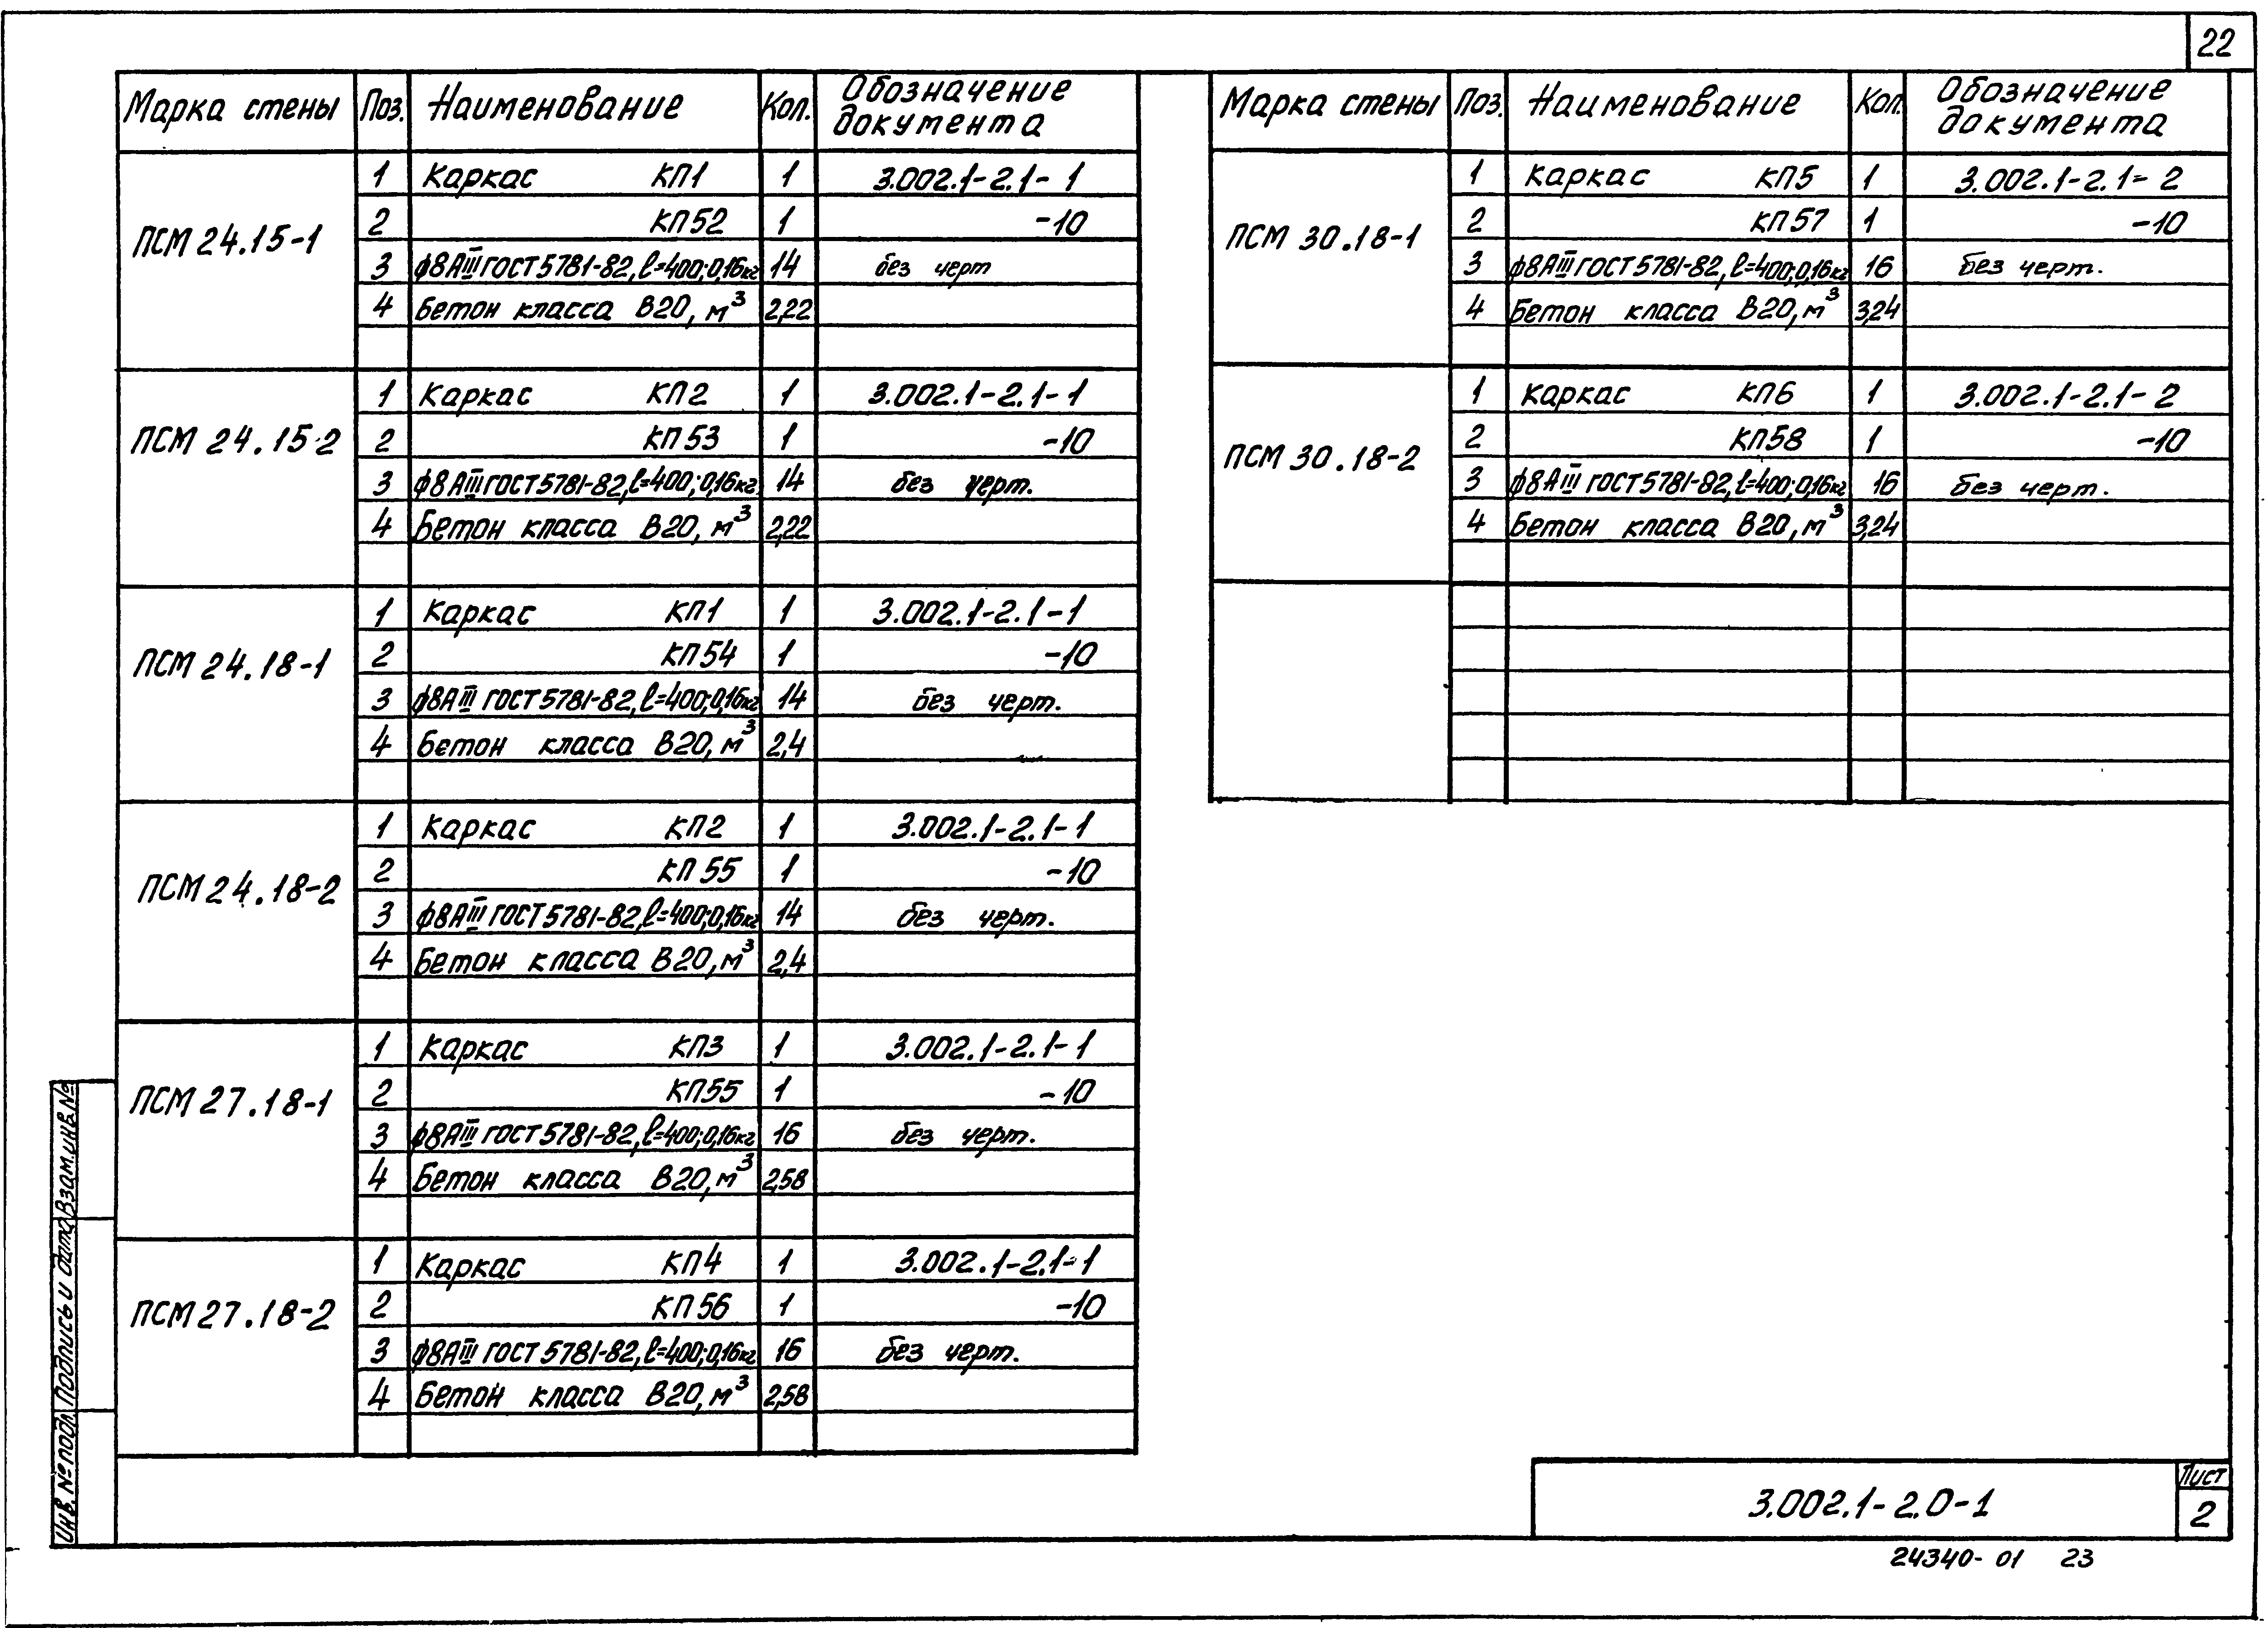 22
Марка стены Поз. Наименование Кол. Обозначение документа
ПСМ 24.15-1
1 Каркас КП1 1 3.002.1-2.1-1
2 КП52 1 -10
3 ф8АIII ГОСТ 5781-82, l=400; 0,16кг 14 без черт
4 Бетон класса В20, м³ 2,22
ПСМ 24.15-2
1 Каркас КП2 1 3.002.1-2.1-1
2 КП53 1 -10
3 ф8АIII ГОСТ 5781-82, l=400; 0,16кг 14 без черт.
4 Бетон класса В20, м³ 2,22
ПСМ 24.18-1
1 Каркас КП1 1 3.002.1-2.1-1
2 КП54 1 -10
3 ф8АIII ГОСТ 5781-82, l=400; 0,16кг 14 без черт.
4 Бетон класса В20, м³ 2,4
ПСМ 24.18-2
1 Каркас КП2 1 3.002.1-2.1-1
2 КП55 1 -10
3 ф8АIII ГОСТ 5781-82, l=400; 0,16кг 14 без черт.
4 Бетон класса В20, м³ 2,4
ПСМ 27.18-1
1 Каркас КП3 1 3.002.1-2.1-1
2 КП55 1 -10
3 ф8АIII ГОСТ 5781-82, l=400; 0,16кг 16 без черт.
4 Бетон класса В20, м³ 2,58
ПСМ 27.18-2
1 Каркас КП4 1 3.002.1-2.1-1
2 КП56 1 -10
3 ф8АIII ГОСТ 5781-82, l=400; 0,16кг 16 без черт.
4 Бетон класса В20, м³ 2,58
Марка стены Поз. Наименование Кол. Обозначение документа
ПСМ 30.18-1
1 Каркас КП5 1 3.002.1-2.1-2
2 КП57 1 -10
3 ф8АIII ГОСТ 5781-82, l=400; 0,16кг 16 без черт.
4 Бетон класса В20, м³ 3,24
ПСМ 30.18-2
1 Каркас КП6 1 3.002.1-2.1-2
2 КП58 1 -10
3 ф8АIII ГОСТ 5781-82, l=400; 0,16кг 16 без черт.
4 Бетон класса В20, м³ 3,24
Инв. № подл. Подпись и дата Взам. инв. №
3.002.1-2.0-1
Лист
2
24340-01 23